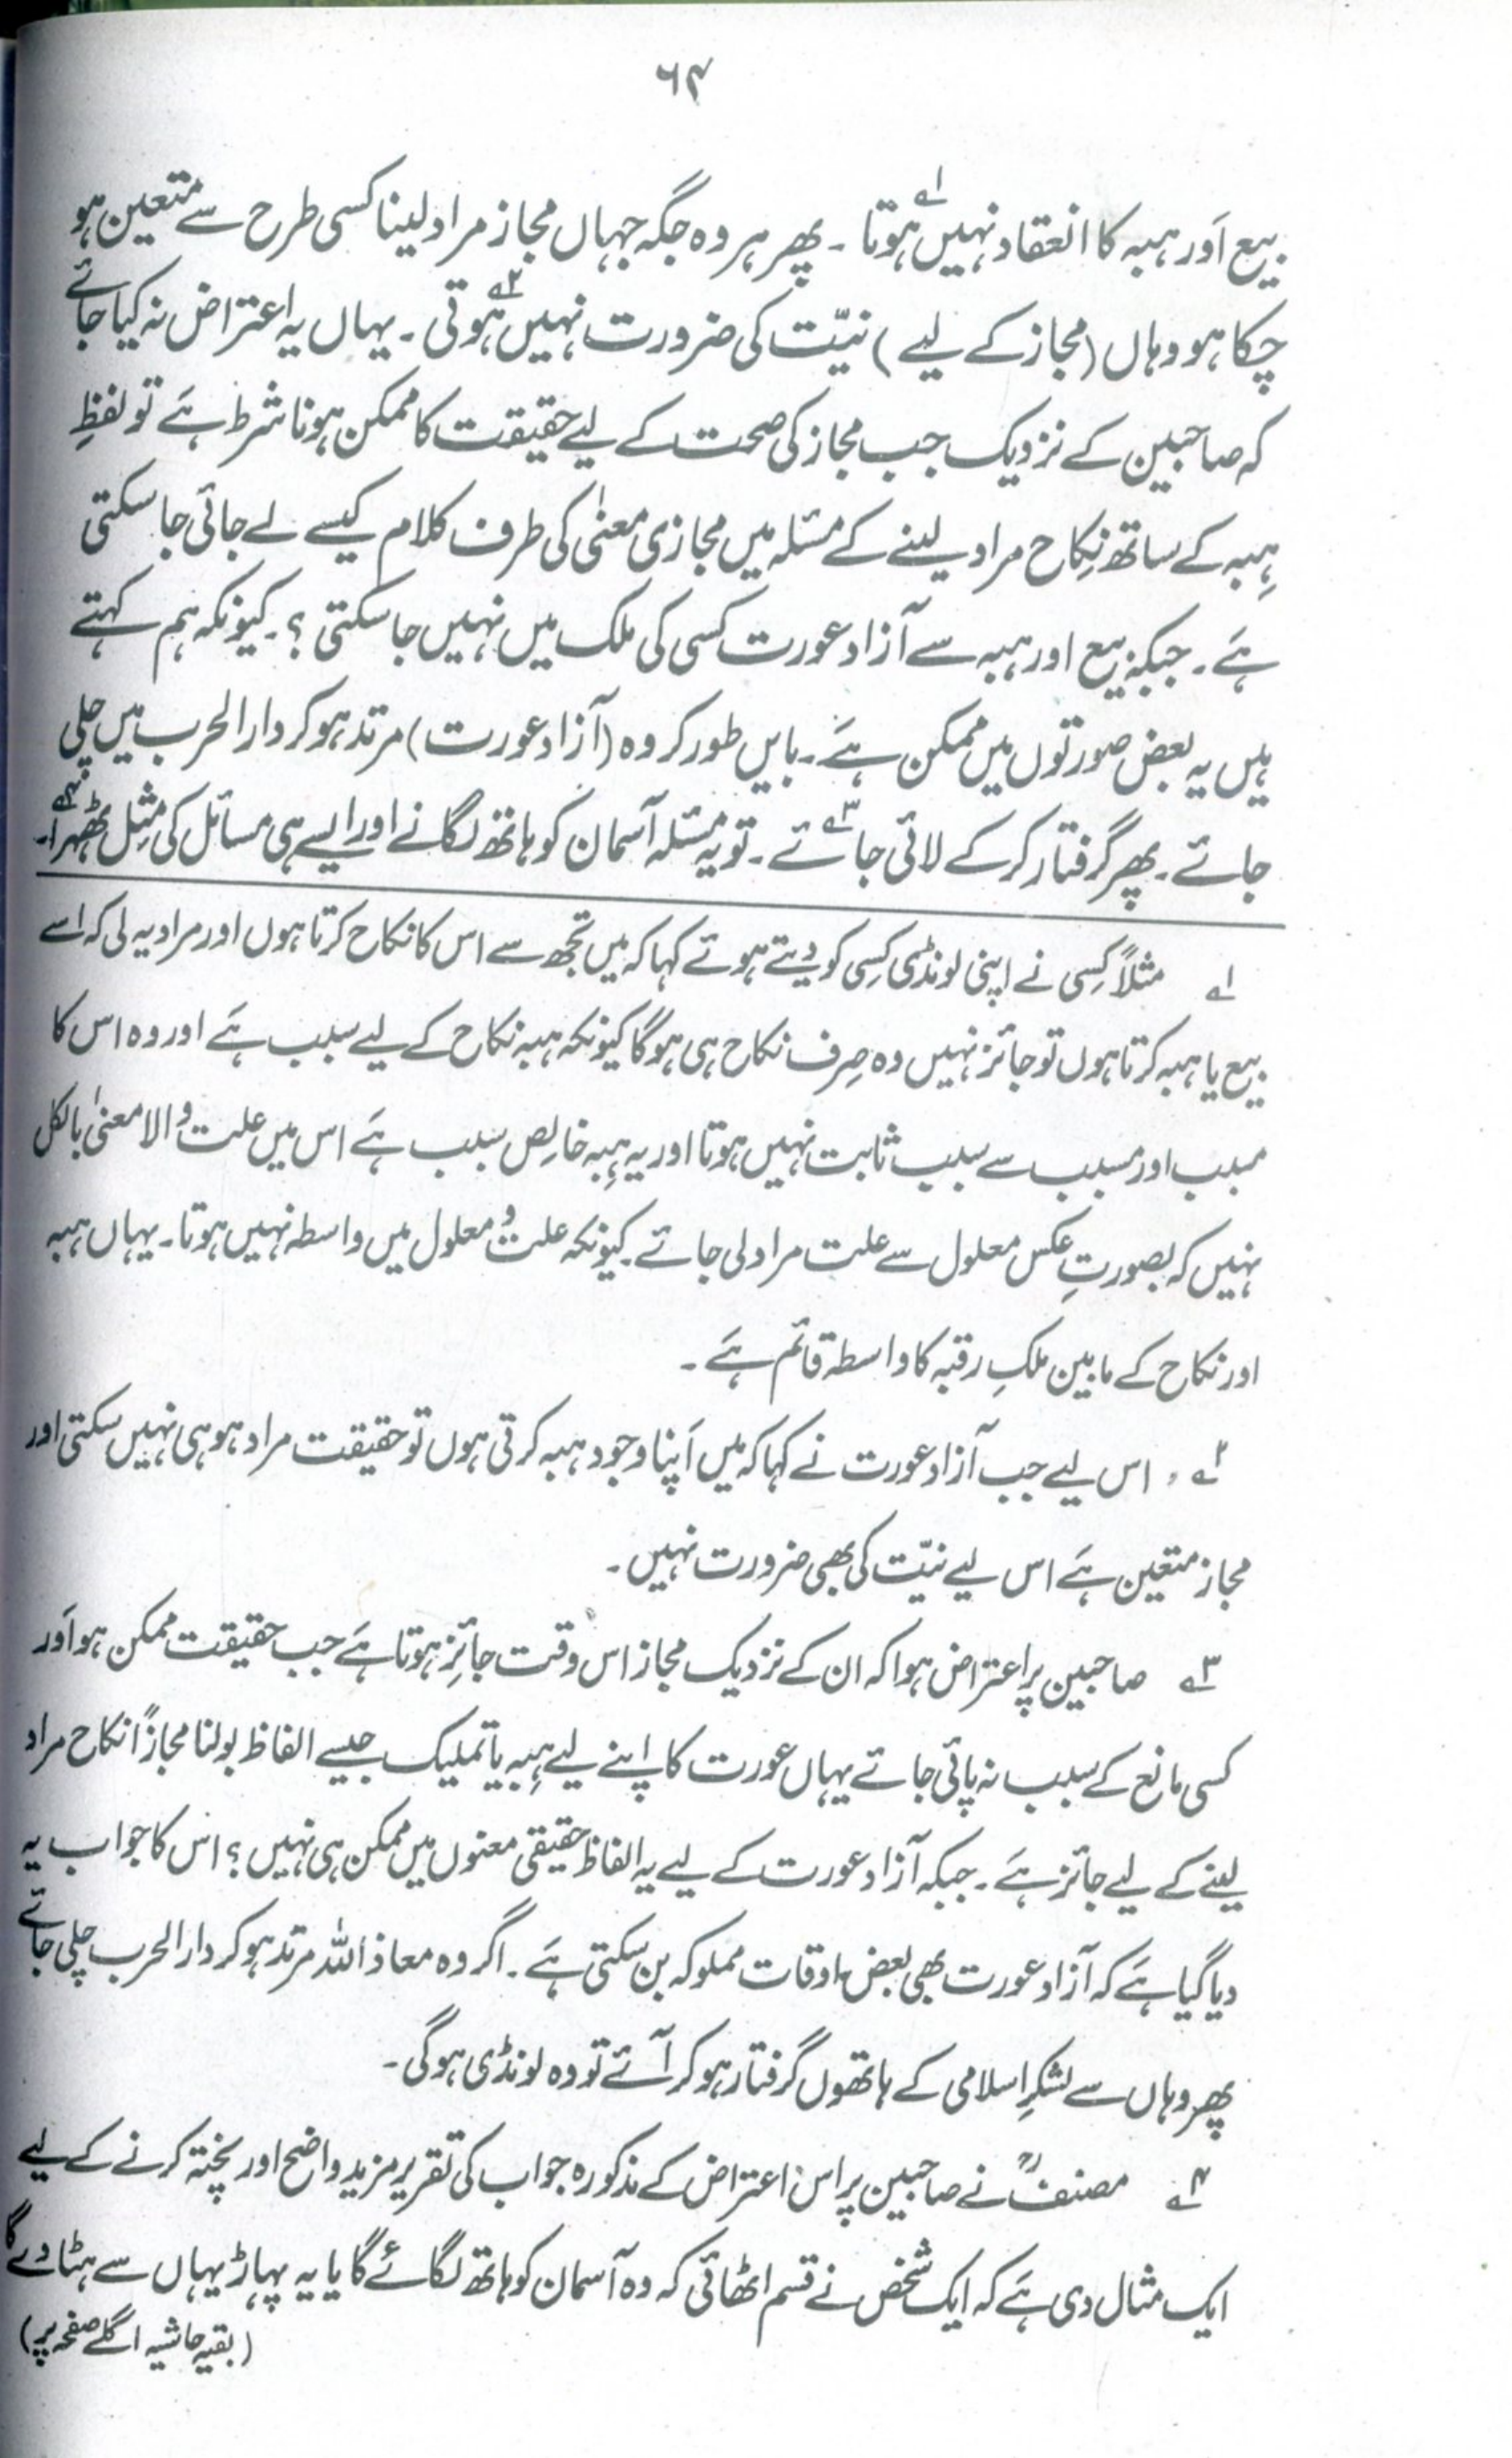 ۶۴
بیع اَور ہبہ کا انعقاد نہیں ہوتا ۱؎ ۔ پھر ہر وہ جگہ جہاں مجاز مراد لینا کسی طرح سے متعین ہو
چکا ہو وہاں (مجاز کے لیے) نیّت کی ضرورت نہیں ہوتی ۲؎ ۔ یہاں یہ اعتراض نہ کیا جائے
کہ صاحبین کے نزدیک جب مجاز کی صحت کے لیے حقیقت کا ممکن ہونا شرط ہَے تو لفظِ
ہِبہ کے ساتھ نِکاح مراد لینے کے مسئلہ میں مجازی معنیٰ کی طرف کلام کیسے لے جائی جا سکتی
ہَے ۔ جبکہ بیع اور ہبہ سے آزاد عورت کسی کی ملک میں نہیں جا سکتی ؟ ۔ کیونکہ ہم کہتے
ہیں یہ بعض صورتوں میں ممکن ہَے ۔ بایں طور کر وہ (آزاد عورت) مرتد ہو کر دار الحرب میں چلی
جائے ۔ پھر گرفتار کر کے لائی جائے ۳؎ ۔ تو یہ مسئلہ آسمان کو ہاتھ لگانے اور ایسے ہی مسائل کی مِثل ٹھہرا ۴؎ ۔
۱؎ مثلاً کِسی نے اپنی لونڈی کِسی کو دیتے ہوئے کہا کہ میں تجھ سے اس کا نکاح کرتا ہوں اور مراد یہ لی کہ اسے
بیع یا ہبہ کرتا ہوں تو جائز نہیں وہ صِرف نکاح ہی ہو گا کیونکہ ہبہ نکاح کے لیے سبب ہَے اور وہ اس کا
مسبب اور مسبب سے سبب ثابت نہیں ہوتا اور یہ ہِبہ خالِص سبب ہَے اس میں علت والا معنیٰ بالکل
نہیں کہ بصورتِ عکس معلول سے علت مراد لی جائے ۔ کیونکہ علت و معلول میں واسطہ نہیں ہوتا ۔ یہاں ہبہ
اور نکاح کے مابین ملکِ رقبہ کا واسطہ قائم ہَے ۔
۲؎ ، اس لیے جب آزاد عورت نے کہا کہ میں اَپنا وجود ہبہ کرتی ہوں تو حقیقت مراد ہو ہی نہیں سکتی اور
مجاز متعین ہَے اس لیے نیّت کی بھی ضرورت نہیں ۔
۳؎ صاحبین پر اعتراض ہوا کہ ان کے نزدیک مجاز اس وقت جائِز ہوتا ہَے جب حقیقت ممکن ہو اَور
کسی مانع کے سبب نہ پائی جائے یہاں عورت کا اپنے لیے ہِبہ یا تملیک جیسے الفاظ بولنا مجازًا نکاح مراد
لینے کے لیے جائز ہَے ۔ جبکہ آزاد عورت کے لیے یہ الفاظ حقیقی معنوں میں ممکن ہی نہیں ؟ اس کا جواب یہ
دیا گیا ہَے کہ آزاد عورت بھی بعض اوقات مملوکہ بن سکتی ہَے ۔ اگر وہ معاذ اللہ مرتد ہو کر دار الحرب چلی جائے
پھر وہاں سے لشکرِ اسلامی کے ہاتھوں گرفتار ہو کر آئے تو وہ لونڈی ہو گی ۔
۴؎ مصنفؒ نے صاحبین پر اس اعتراض کے مذکورہ جواب کی تقریر مزید واضح اور پختہ کرنے کے لیے
ایک مثال دی ہَے کہ ایک شخص نے قسم اٹھائی کہ وہ آسمان کو ہاتھ لگائے گا یا یہ پہاڑ یہاں سے ہٹا دے گا
(بقیہ حاشیہ اگلے صفحہ پر)